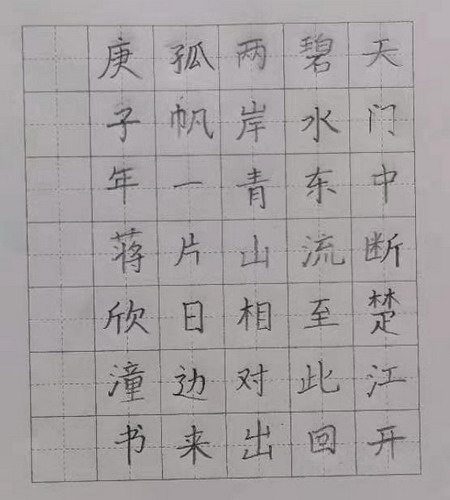 天门中断楚江开
碧水东流至此回
两岸青山相对出
孤帆一片日边来
庚子年蒋欣潼书